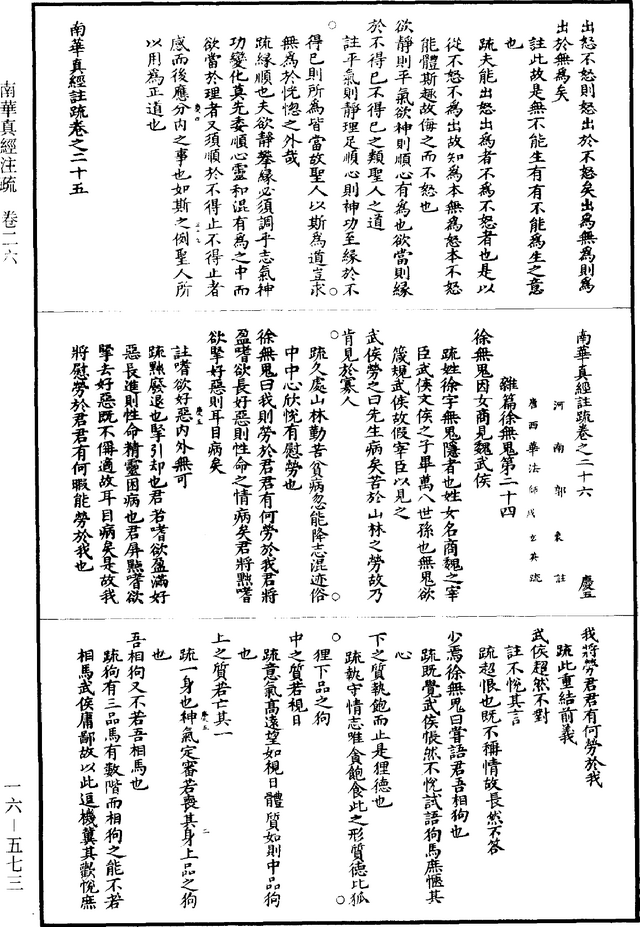 出怒不怒則怒出於不怒矣出爲無爲則爲
出於無爲矣
註此故是無不能生有有不能爲生之意
也
疏夫能出怒出爲者不爲不怒者也是以
從不怒不爲出故知爲本無爲怒本不怒
能體斯趣故侮之而不怒也
欲靜則平氣欲神則順心有爲也欲當則緣
於不得已不得已之類聖人之道
註平氣則靜理足順心則神功至緣於不
得已則所爲皆當故聖人以斯爲道豈求
無爲於恍惚之外哉
疏緣順也夫欲靜攀緣必須調乎志氣神
功變化莫先委順心靈和混有爲之中而
欲當於理者又須順於不得止不得止者
感而後應分內之事也如斯之例聖人所
以用爲正道也
南華真經註疏卷之二十五
南華真經註疏卷之二十六 慶五
河南郭象註
唐西華法師成玄英疏
雜篇徐無鬼第二十四
徐無鬼因女商見魏武侯
疏姓徐字無鬼隱者也姓女名商魏之宰
臣武侯文侯之子畢萬八世孫也無鬼欲
箴規武侯故假宰臣以見之
武侯勞之曰先生病矣苦於山林之勞故乃
肯見於寡人
疏久處山林勤苦貧病忽能降志混迹俗
中中心欣悅有慰勞也
徐無鬼曰我則勞於君君有何勞於我君將
盈嗜欲長好惡則性命之情病矣君將黜嗜
欲掔好惡則耳目病矣
註嗜欲好惡內外無可
疏黜廢退也掔引却也君若嗜欲盈滿好
惡長進則性命精靈困病也君屏黜嗜欲
掔去好惡既不稱適故耳目病矣是故我
將慰勞於君君有何暇能勞於我也
我將勞君君有何勞於我
疏此重結前義
武侯超然不對
註不悅其言
疏超悵也既不稱情故長然不答
少焉徐無鬼曰嘗語君吾相狗也
疏既覺武侯悵然不悅試語狗馬庶愜其
心
下之質執飽而止是狸德也
疏執守情志唯貪飽食此之形質德比狐
狸下品之狗
中之質若視日
疏意氣高遠望如視日體質如則中品狗
也
上之質若亡其一
疏一身也神氣定審若喪其身上品之狗
也
吾相狗又不若吾相馬也
疏狗有三品馬有數階而相狗之能不若
相馬武侯庸鄙故以此逗機冀其歡悅庶
南華真經注疏 卷二六
一六—五七三